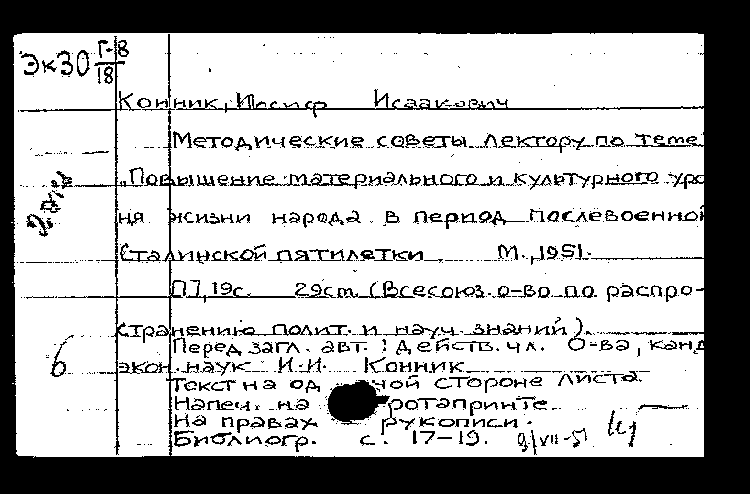 Эк30 Г-8/18
Конник, Иосиф Исаакович
Методические советы лектору по теме
„Повышение материального и культурного уро
ня жизни народа в период послевоенной
Сталинской пятилетки. М., 1951.
[1], 19с. 29см. (Всесоюз. о-во по распро-
странению полит. и науч. знаний).
Перед загл. авт.: действ. чл. О-ва, канд
экон. наук И.И. Конник
6
Текст на од ной стороне листа.
Напеч. на ротапринте
На правах рукописи.
Библиогр. с. 17-19.
9/VII-51